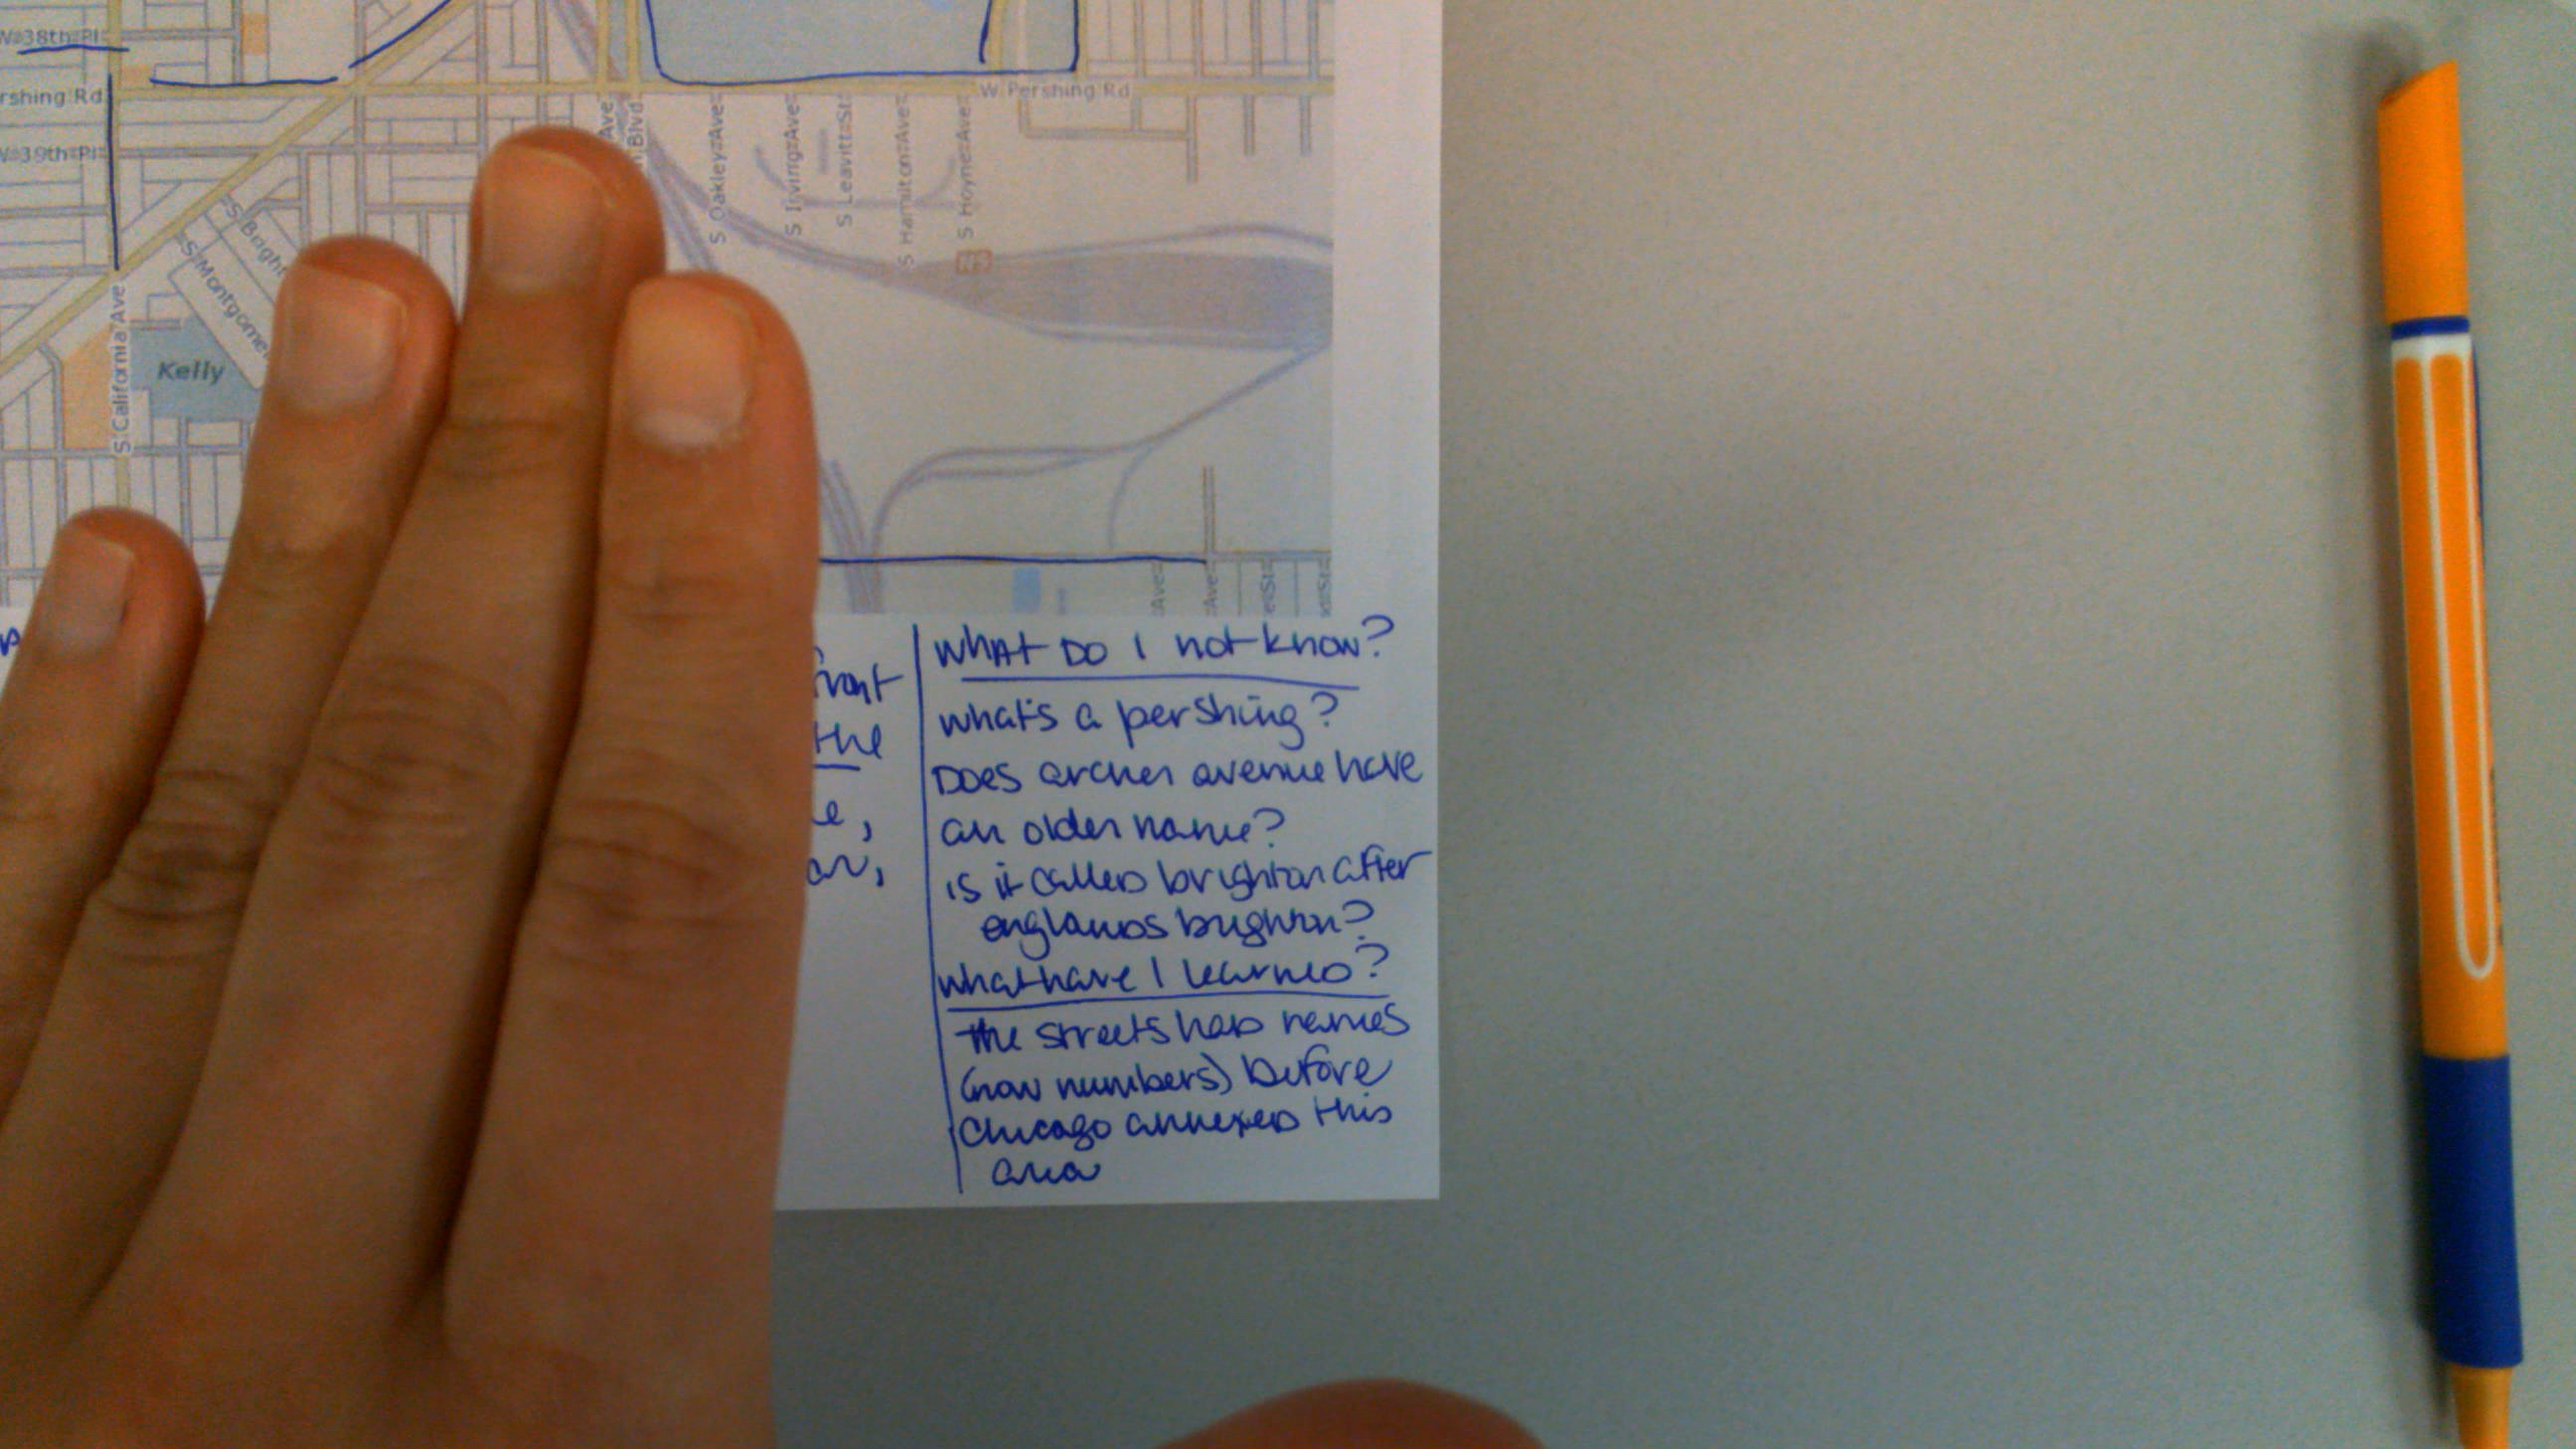 W 38th Pl
rshing Rd
W Pershing Rd
W 39th Pl
Ave
n Blvd
S Oakley Ave
S Irving Ave
S Leavitt St
S Hamilton Ave
S Hoyne Ave
S Bright
S Montgome
S California Ave
Kelly
Ave
Ave
e St
front
the
e,
an,
WhAt DO I not know?
what's a pershing?
Does archer avenue have
an older name?
is it called brighton after
englands brighton?
what have I learned?
the streets had names
(now numbers) before
Chicago annexed this
area